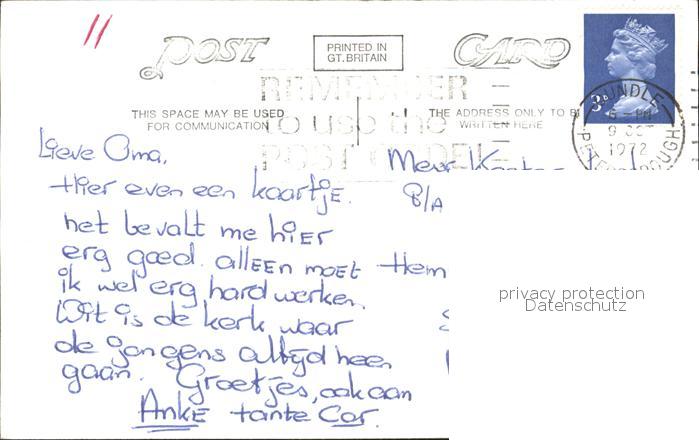 POST CARD
PRINTED IN
GT. BRITAIN
REMEMBER
to use the
THIS SPACE MAY BE USED
FOR COMMUNICATION
THE ADDRESS ONLY TO B
WRITTEN HERE
3P
OUNDLE
5 - PM
9 OCT
1972
PETERBOROUGH
Lieve Oma,
Hier even een kaartje.
het bevalt me hiER
erg goed. allEEn moET
ik wel erg hard werken.
Dit is de kerk waar
de jongens altijd heen
gaan. Groetjes, ook aan
AnkE tante Cor.
Mevr
8/A
Hem
privacy protection
Datenschutz